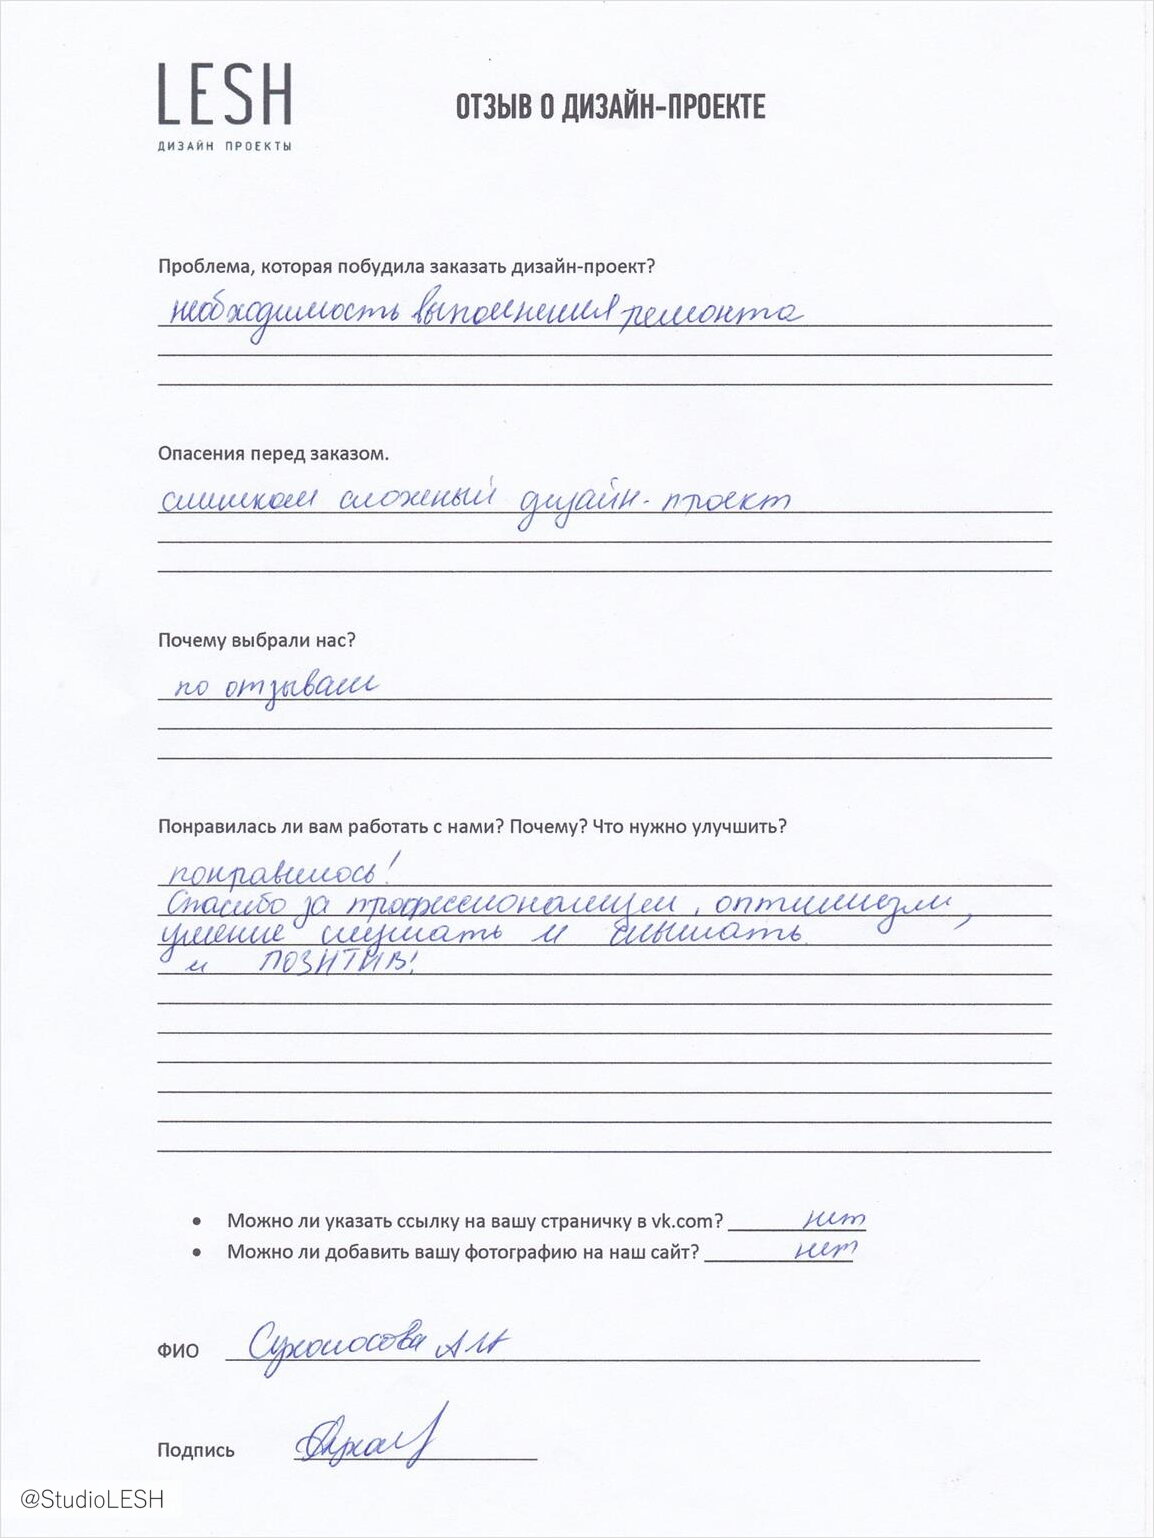 LESH
ДИЗАЙН ПРОЕКТЫ
ОТЗЫВ О ДИЗАЙН-ПРОЕКТЕ
Проблема, которая побудила заказать дизайн-проект?
необходимость выполнения ремонта
Опасения перед заказом.
слишком сложеный дизайн-проект
Почему выбрали нас?
по отзывам
Понравилась ли вам работать с нами? Почему? Что нужно улучшить?
понравилось!
Спасибо за профессионализм, оптимизм,
умение слушать и слышать
и ПОЗИТИВ!
Можно ли указать ссылку на вашу страничку в vk.com? нет
Можно ли добавить вашу фотографию на наш сайт? нет
ФИО
Подпись
@StudioLESH